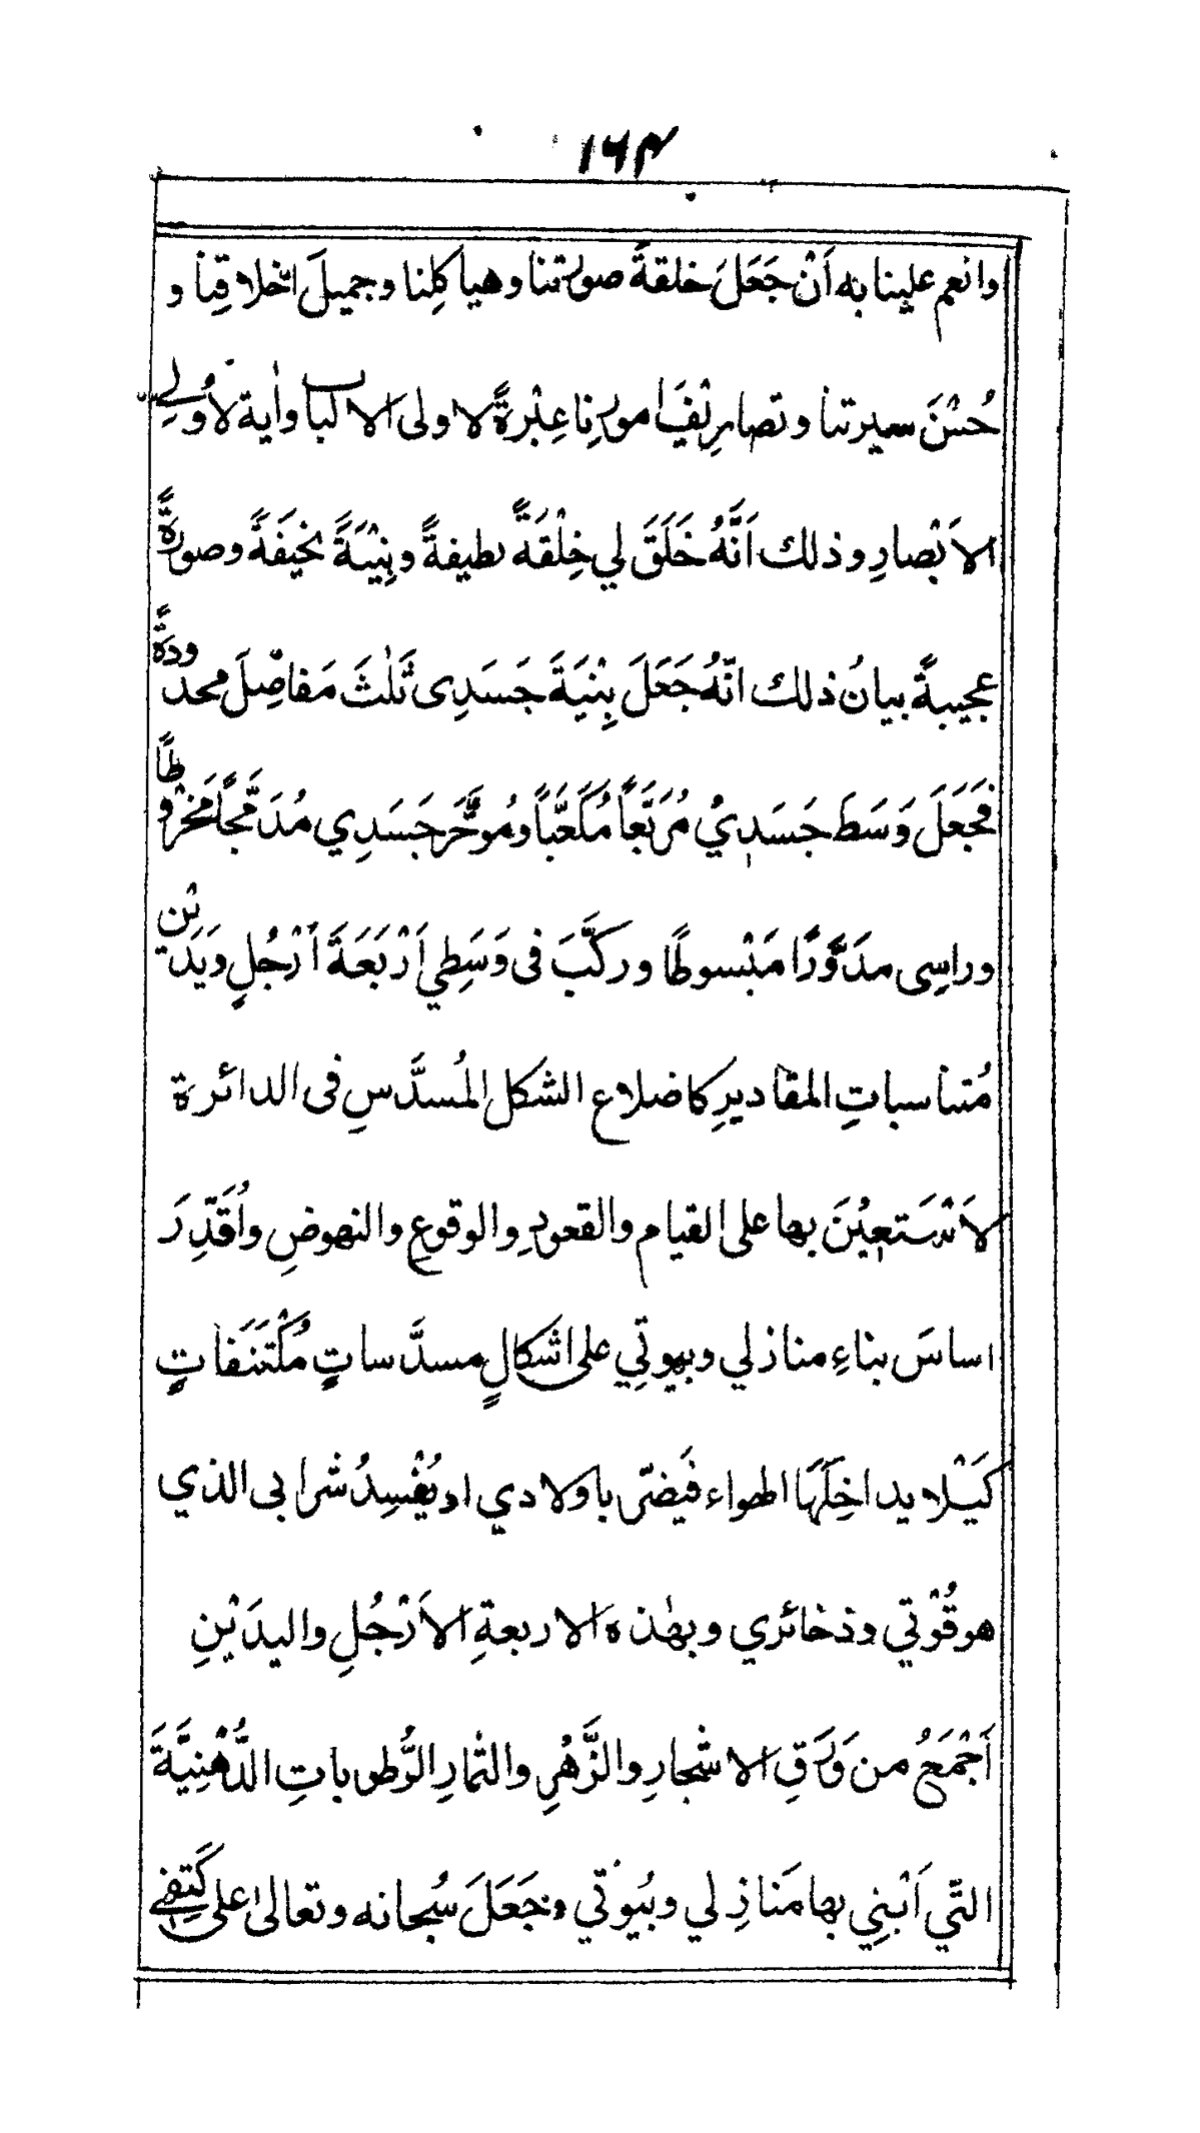 ۱۶۴
وانعم علينا به اَنْ جَعَلَ خلقةَ صورتنا وهياكلنا وجميلَ اخلاقنا و
حُسْنَ سيرتنا وتصاريْفَ امورِنا عِبْرةً لاولى الالباب واٰية لاُولِي
الاَبْصارِ وذلك اَنَّهُ خَلَقَ لي خِلْقَةً لطيفةً وبِنْيَةً نحِيفَةً وصورةً
عجيبةً بيانُ ذلك انّهُ جَعَلَ بِنْيَةَ جَسَدِى ثَلٰثَ مَفاصِلَ محدودةً
فجَعَلَ وَسَطَ جَسَدِيْ مُرَبَّعاً مُكَعَّباً ومُوخَّرَ جَسَدِي مُدَمَّجًا مَخْرُوطًا
وراسِى مدَوَّرًا مَبْسوطًا وركَّبَ فى وَسَطِي اَرْبَعَةَ اَرْجُلٍ وَيَدَيْنِ
مُتناسباتِ المقاديرِ كاضلاع الشكل المُسدَّسِ فى الدائرة
لاَسْتَعِيْنَ بها على القيام والقعودِ والوقوعِ والنهوضِ واُقَدِّرَ
اساسَ بناءِ منازلي وبيوتِي على اشكالٍ مسدَّساتٍ مُكْتَنَفاتٍ
كَيْلا يداخِلَهَا الهواء فيَضرّ باولادي او يُفْسِدُ شرابى الذي
هو قُوْتي وذخائري وبهٰذه الاربعةِ الاَرْجُلِ واليدَيْنِ
اَجْمَعُ من وَرَقِ الاشجارِ والزَّهْرِ والثمارِ الرُّطوباتِ الدُّهْنِيَّةَ
التّي اَبْنِي بها مَنازِلي وبُيوتي وجَعَلَ سُبحانه وتعالىٰ على كَتِفي